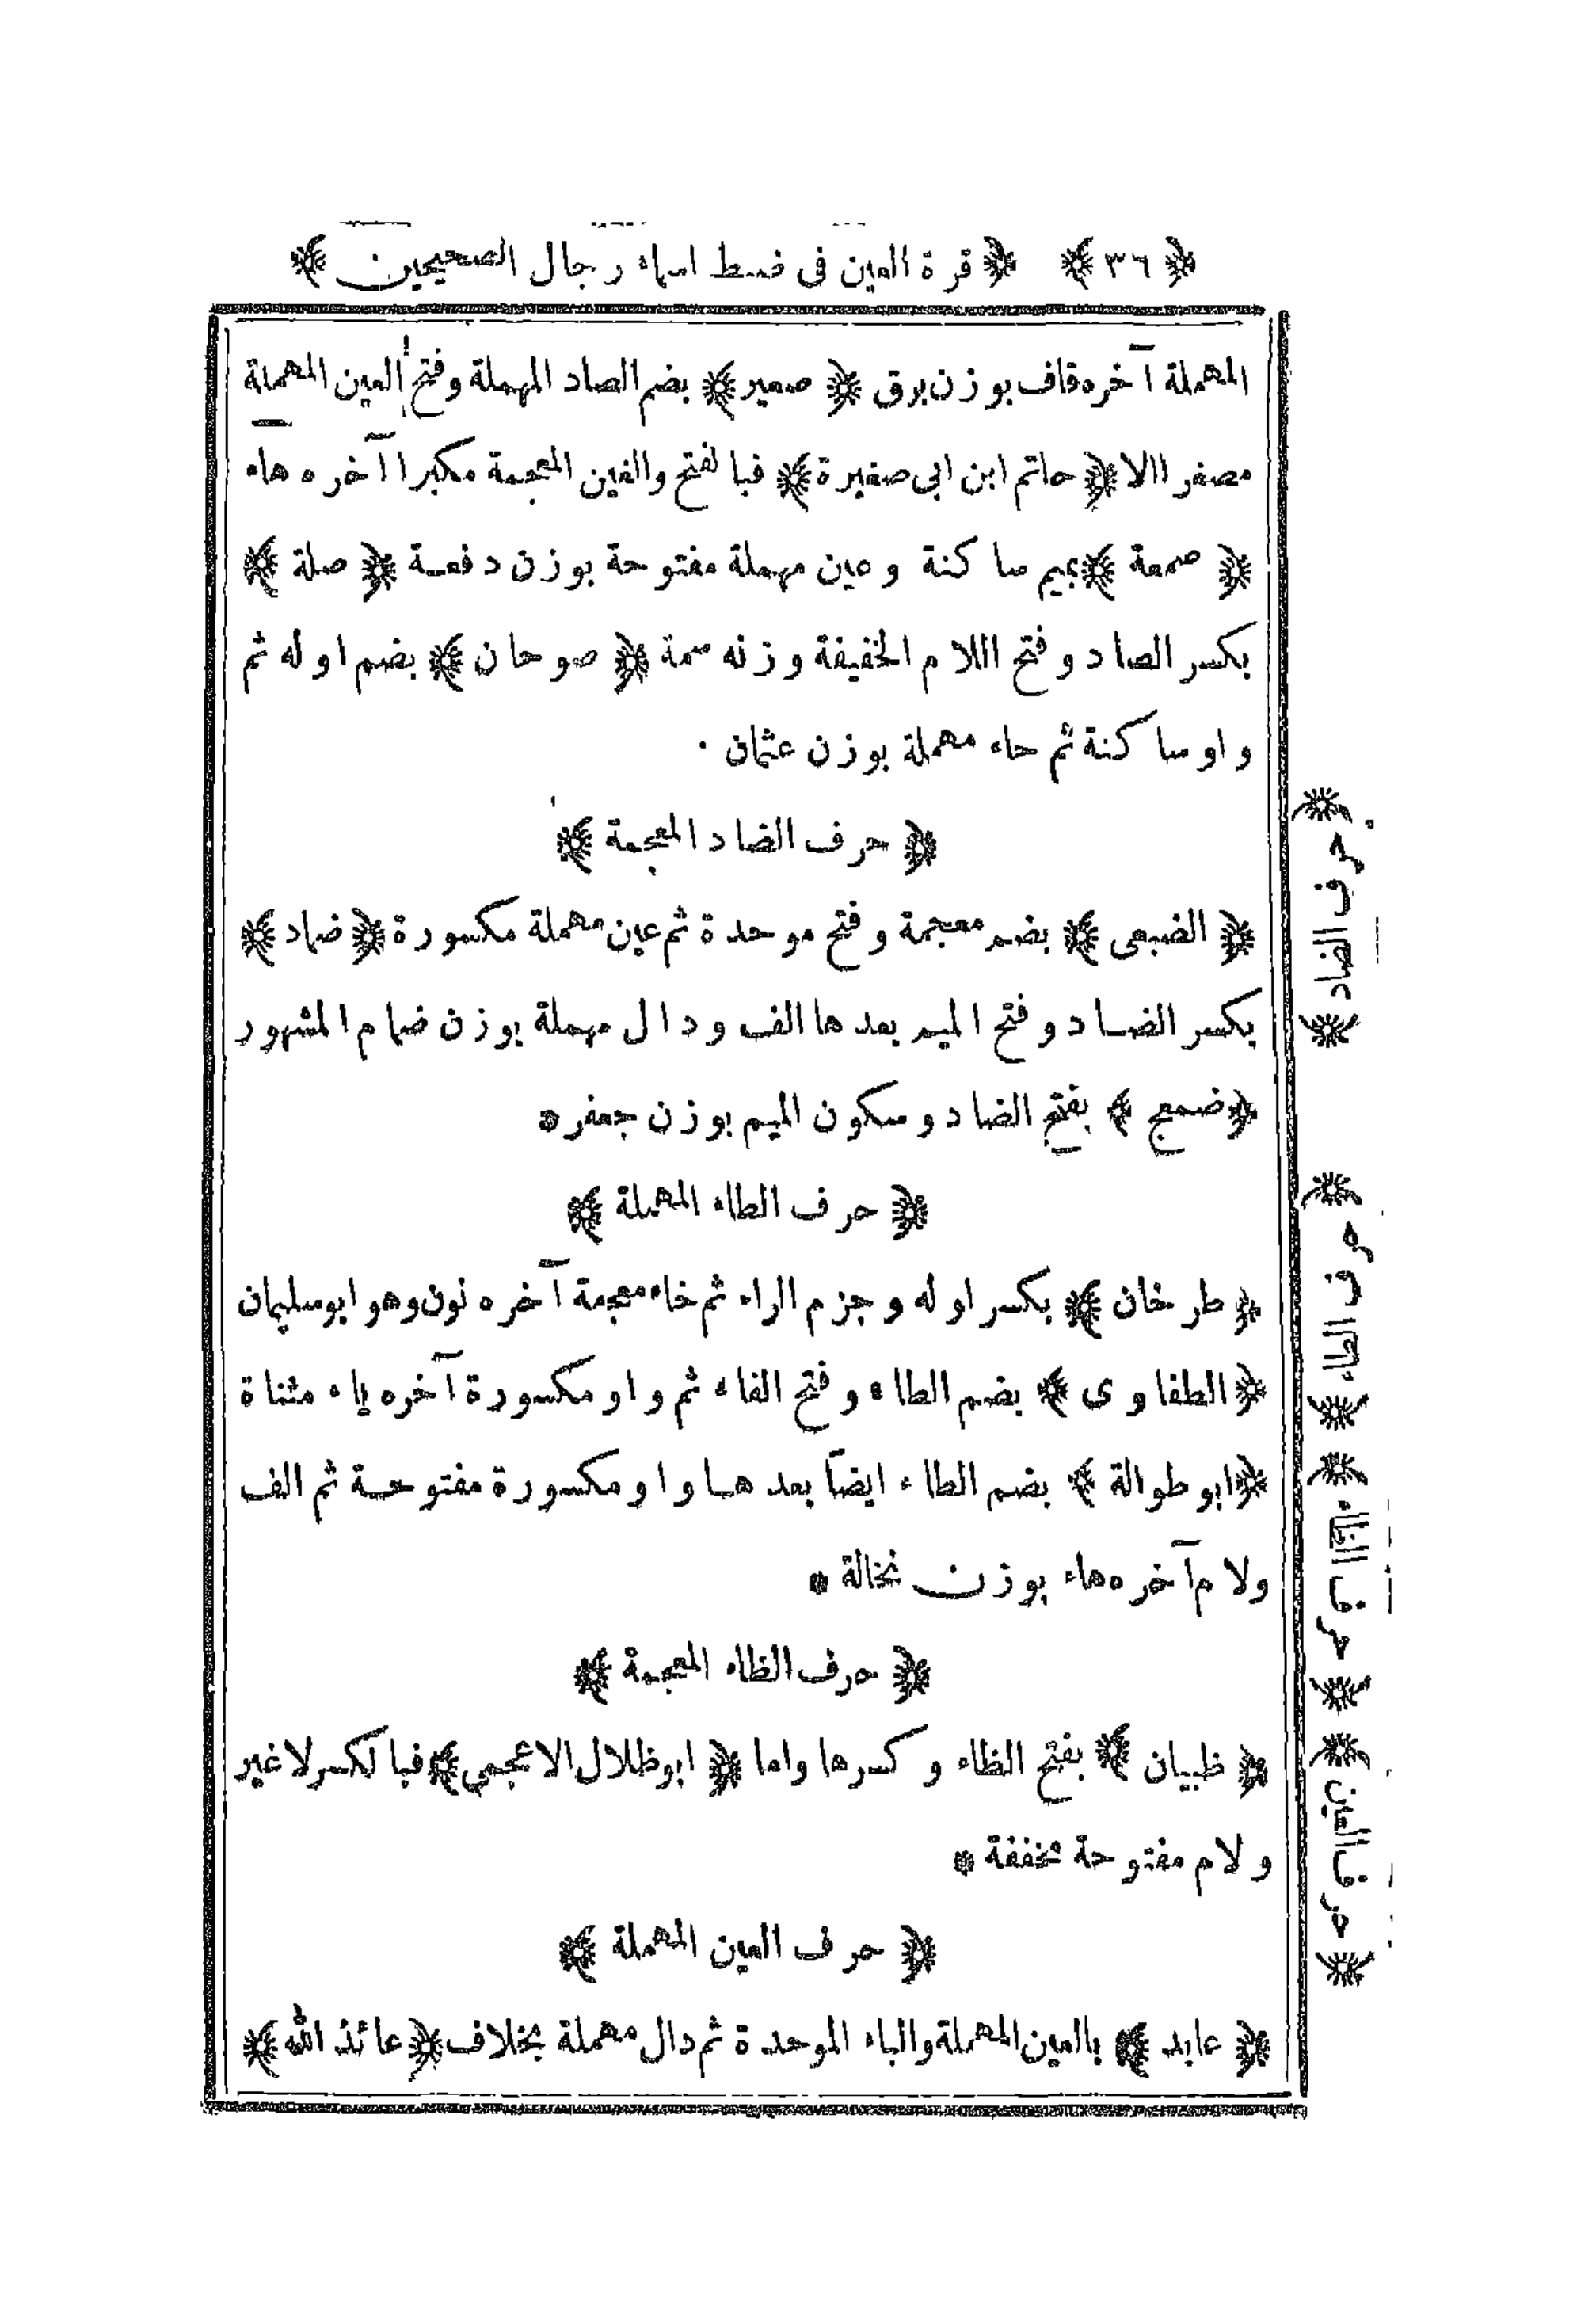 ﴿ ٣٦ ﴾ ﴿ قرة العين فى ضبط اسماء رجال الصحيحين ﴾
المهملة آخره قاف بوزن برق ﴿ صعير ﴾ بضم الصاد المهملة وفتح العين المهملة
مصغرا الا ﴿ حاتم ابن ابى صغيرة ﴾ فبالفتح والغين المعجمة مكبرا آخره هاء
﴿ صمعة ﴾ بميم ساكنة وعين مهملة مفتوحة بوزن دفعة ﴿ صلة ﴾
بكسر الصاد وفتح اللام الخفيفة وزنه سمة ﴿ صوحان ﴾ بضم اوله ثم
واو ساكنة ثم حاء مهملة بوزن عثمان .
﴿ حرف الضاد المعجمة ﴾
﴿ الضبعى ﴾ بضم معجمة وفتح موحدة ثم عين مهملة مكسورة ﴿ ضماد ﴾
بكسر الضاد وفتح الميم بعدها الف ودال مهملة بوزن ضمام المشهور
﴿ ضمعج ﴾ بفتح الضاد وسكون الميم بوزن جعفر *
﴿ حرف الطاء المهملة ﴾
﴿ طرخان ﴾ بكسر اوله وجزم الراء ثم خاء معجمة آخره نون وهو ابو سليمان
﴿ الطفاوى ﴾ بضم الطاء وفتح الفاء ثم واو مكسورة آخره ياء مثناة
﴿ ابو طوالة ﴾ بضم الطاء ايضاً بعدها واو مكسورة مفتوحة ثم الف
ولام آخره هاء بوزن نخالة *
﴿ حرف الظاء المعجمة ﴾
﴿ ظبيان ﴾ بفتح الظاء وكسرها واما ﴿ ابو ظلال الاعجمي ﴾ فبالكسر لا غير
ولام مفتوحة مخففة *
﴿ حرف العين المهملة ﴾
﴿ عابد ﴾ بالعين المهملة والباء الموحدة ثم دال مهملة بخلاف ﴿ عائذ الله ﴾
﴿ حرف الضاد ﴾
﴿ حرف الطاء ﴾
﴿ حرف الظاء ﴾
﴿ حرف العين ﴾